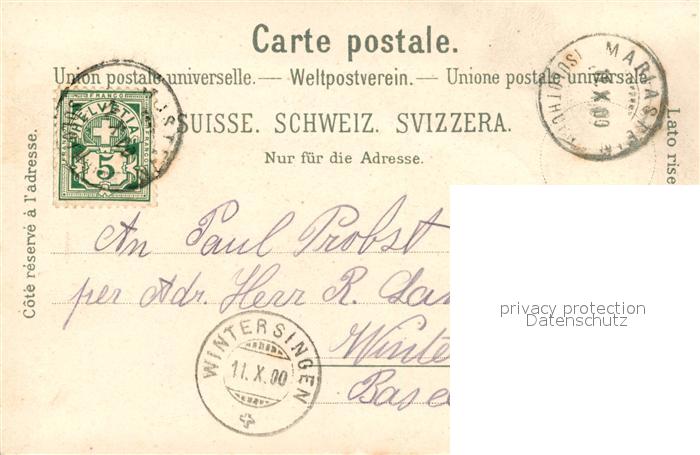 Carte postale.
Union postale universelle. — Weltpostverein. — Unione postale universale
SUISSE. SCHWEIZ. SVIZZERA.
Nur für die Adresse.
Côté réservé à l'adresse.
Lato rise
FRANCO
HELVETIA
5
MARIASTEIN
X.00
An Paul Probst
per Adr. Herr R.
WINTERSINGEN
11.X.00
privacy protection
Datenschutz